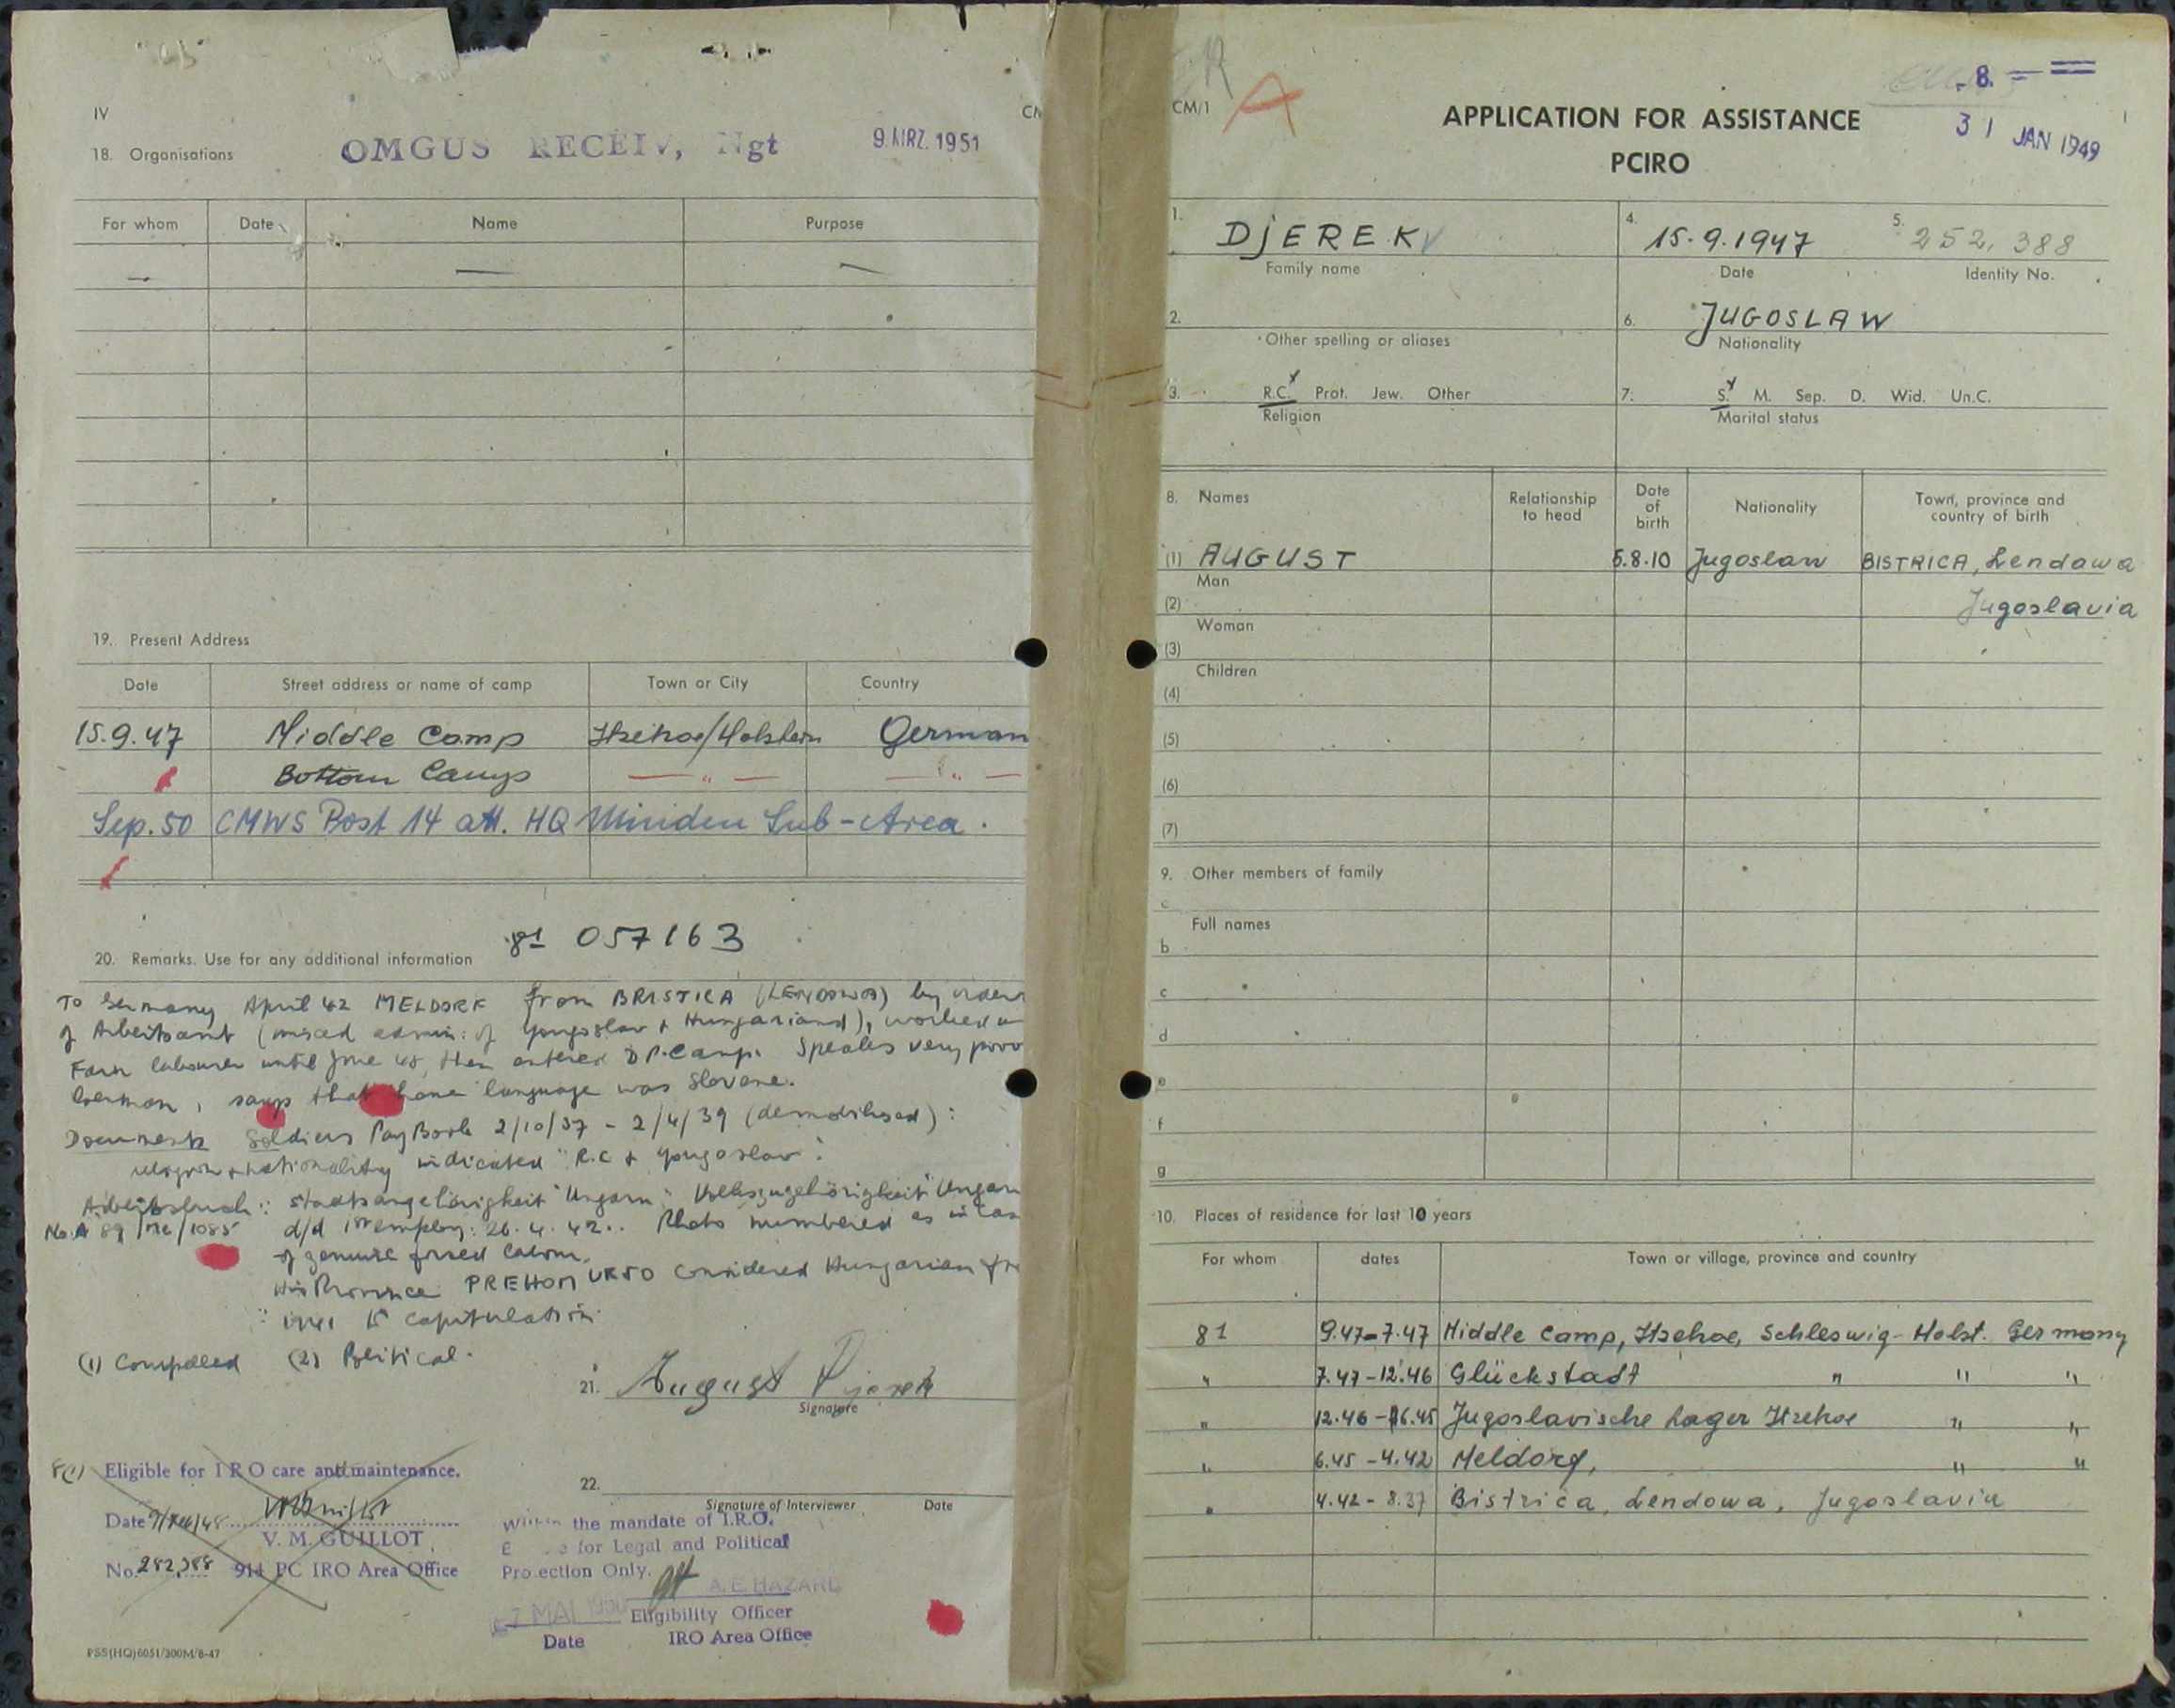 IV
18. Organisations
OMGUS RECEIV, Ngt
9. MRZ. 1951
For whom Date Name Purpose
— — —
19. Present Address
Date Street address or name of camp Town or City Country
15.9.47 Middle Camp Itzehoe/Holstein German
Bottom Camp — " — — " —
Sep. 50 CMWS Post 14 att. HQ Minden Sub-Area.
81 057163
20. Remarks. Use for any additional information
To Germany April 42 MELDORF from BRISTICA (LENDOWA) by order
of Arbeitsamt (mixed admin: of Yougoslav + Hungarians), worked
Farm labourer until June 45, then entered D.P. Camp. Speaks very poor
German, says that home language was Slovene.
Documents Soldiers Pay Book 2/10/37 - 2/4/39 (demobilised):
religion + nationality indicated "R.C + Yougoslav".
Arbeitsbuch: Staatsangehörigkeit "Ungarn" Volkszugehörigkeit "Ungar
No. A 89/ /1085 d/d 1st employ: 26.4.42.. Photo numbered as in cas
of genuine forced labour.
His Province PREKOMURSO considered Hungarian
1941 to capitulation
(1) Compelled (2) Political.
21. August Djerek
Signature
8(1) Eligible for I R O care and maintenance.
Date
V. M. GUILLOT
No. 282,388 914 PC IRO Area Office
22.
Signature of Interviewer Date
Within the mandate of I.R.O.
E e for Legal and Political
Pro ection Only.
A. E. HAZARD
7 MAI 1950 Eligibility Officer
Date IRO Area Office
PSS(HQ)6051/300M/8-47
CM/1
A
APPLICATION FOR ASSISTANCE
PCIRO
- 8. - =
31 JAN 1949
1. DjEREK 4. 15.9.1947 5. 252,388
Family name Date Identity No.
2. 6. JUGOSLAW
Other spelling or aliases Nationality
3. R.C. Prot. Jew. Other 7. S. M. Sep. D. Wid. Un.C.
Religion Marital status
8. Names Relationship to head Date of birth Nationality Town, province and country of birth
(1) AUGUST 5.8.10 Jugoslaw BISTRICA, Lendawa
Man
(2) Jugoslavia
Woman
(3)
Children
(4)
(5)
(6)
(7)
9. Other members of family
c
Full names
b
c
d
e
f
g
10. Places of residence for last 10 years
For whom dates Town or village, province and country
81 9.47-7.47 Middle Camp, Itzehoe, Schleswig-Holst. Germany
" 7.47-12.46 Glückstadt " " "
" 12.46-6.45 Jugoslavische Lager Itzehoe " "
" 6.45-4.42 Meldorf, " "
" 4.42-8.37 Bistrica, Lendowa, Jugoslavia